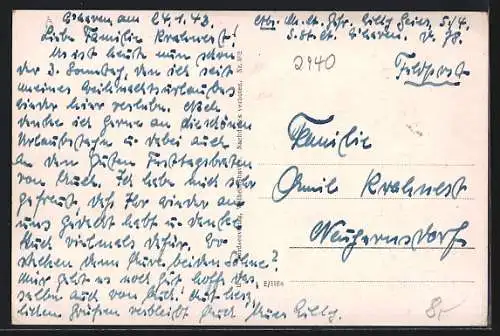 am 24.1.43.
Liebe Familie Krahnest!
Es ist heute nun schon
der 3. Sonntag, den ich seit
meines Weihnachtsurlaubes
wieder hier verlebe. Noch
denke ich gerne an die schönen
Urlaubstage u. dabei auch
an den guten Festtagsbraten
von Euch. Ich habe mich sehr
gefreut, daß Ihr wieder an
uns gedacht habt u. danke
Euch vielmals dafür. Wo
stecken denn Eure beiden Söhne?
Mir geht es noch gut hoffe das-
selbe auch von Euch! Mit herz-
lichen Grüßen verbleibt Euer
2940
Feldpost
Familie
Emil Krahnest
Neugersdorf
Nachdruck verboten. Nr. 892
8,-